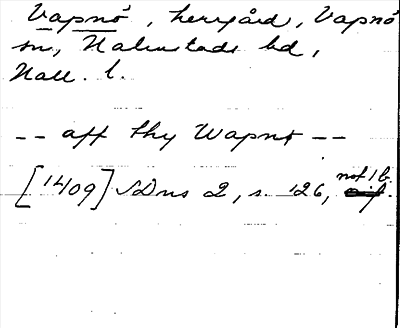 Vapnö, herrgård, Vapnö
sn, Halmstads hd,
Hall. l.
-- aff thy Wapnø --
not 1 b.
[1409] SDns 2, s. 126,